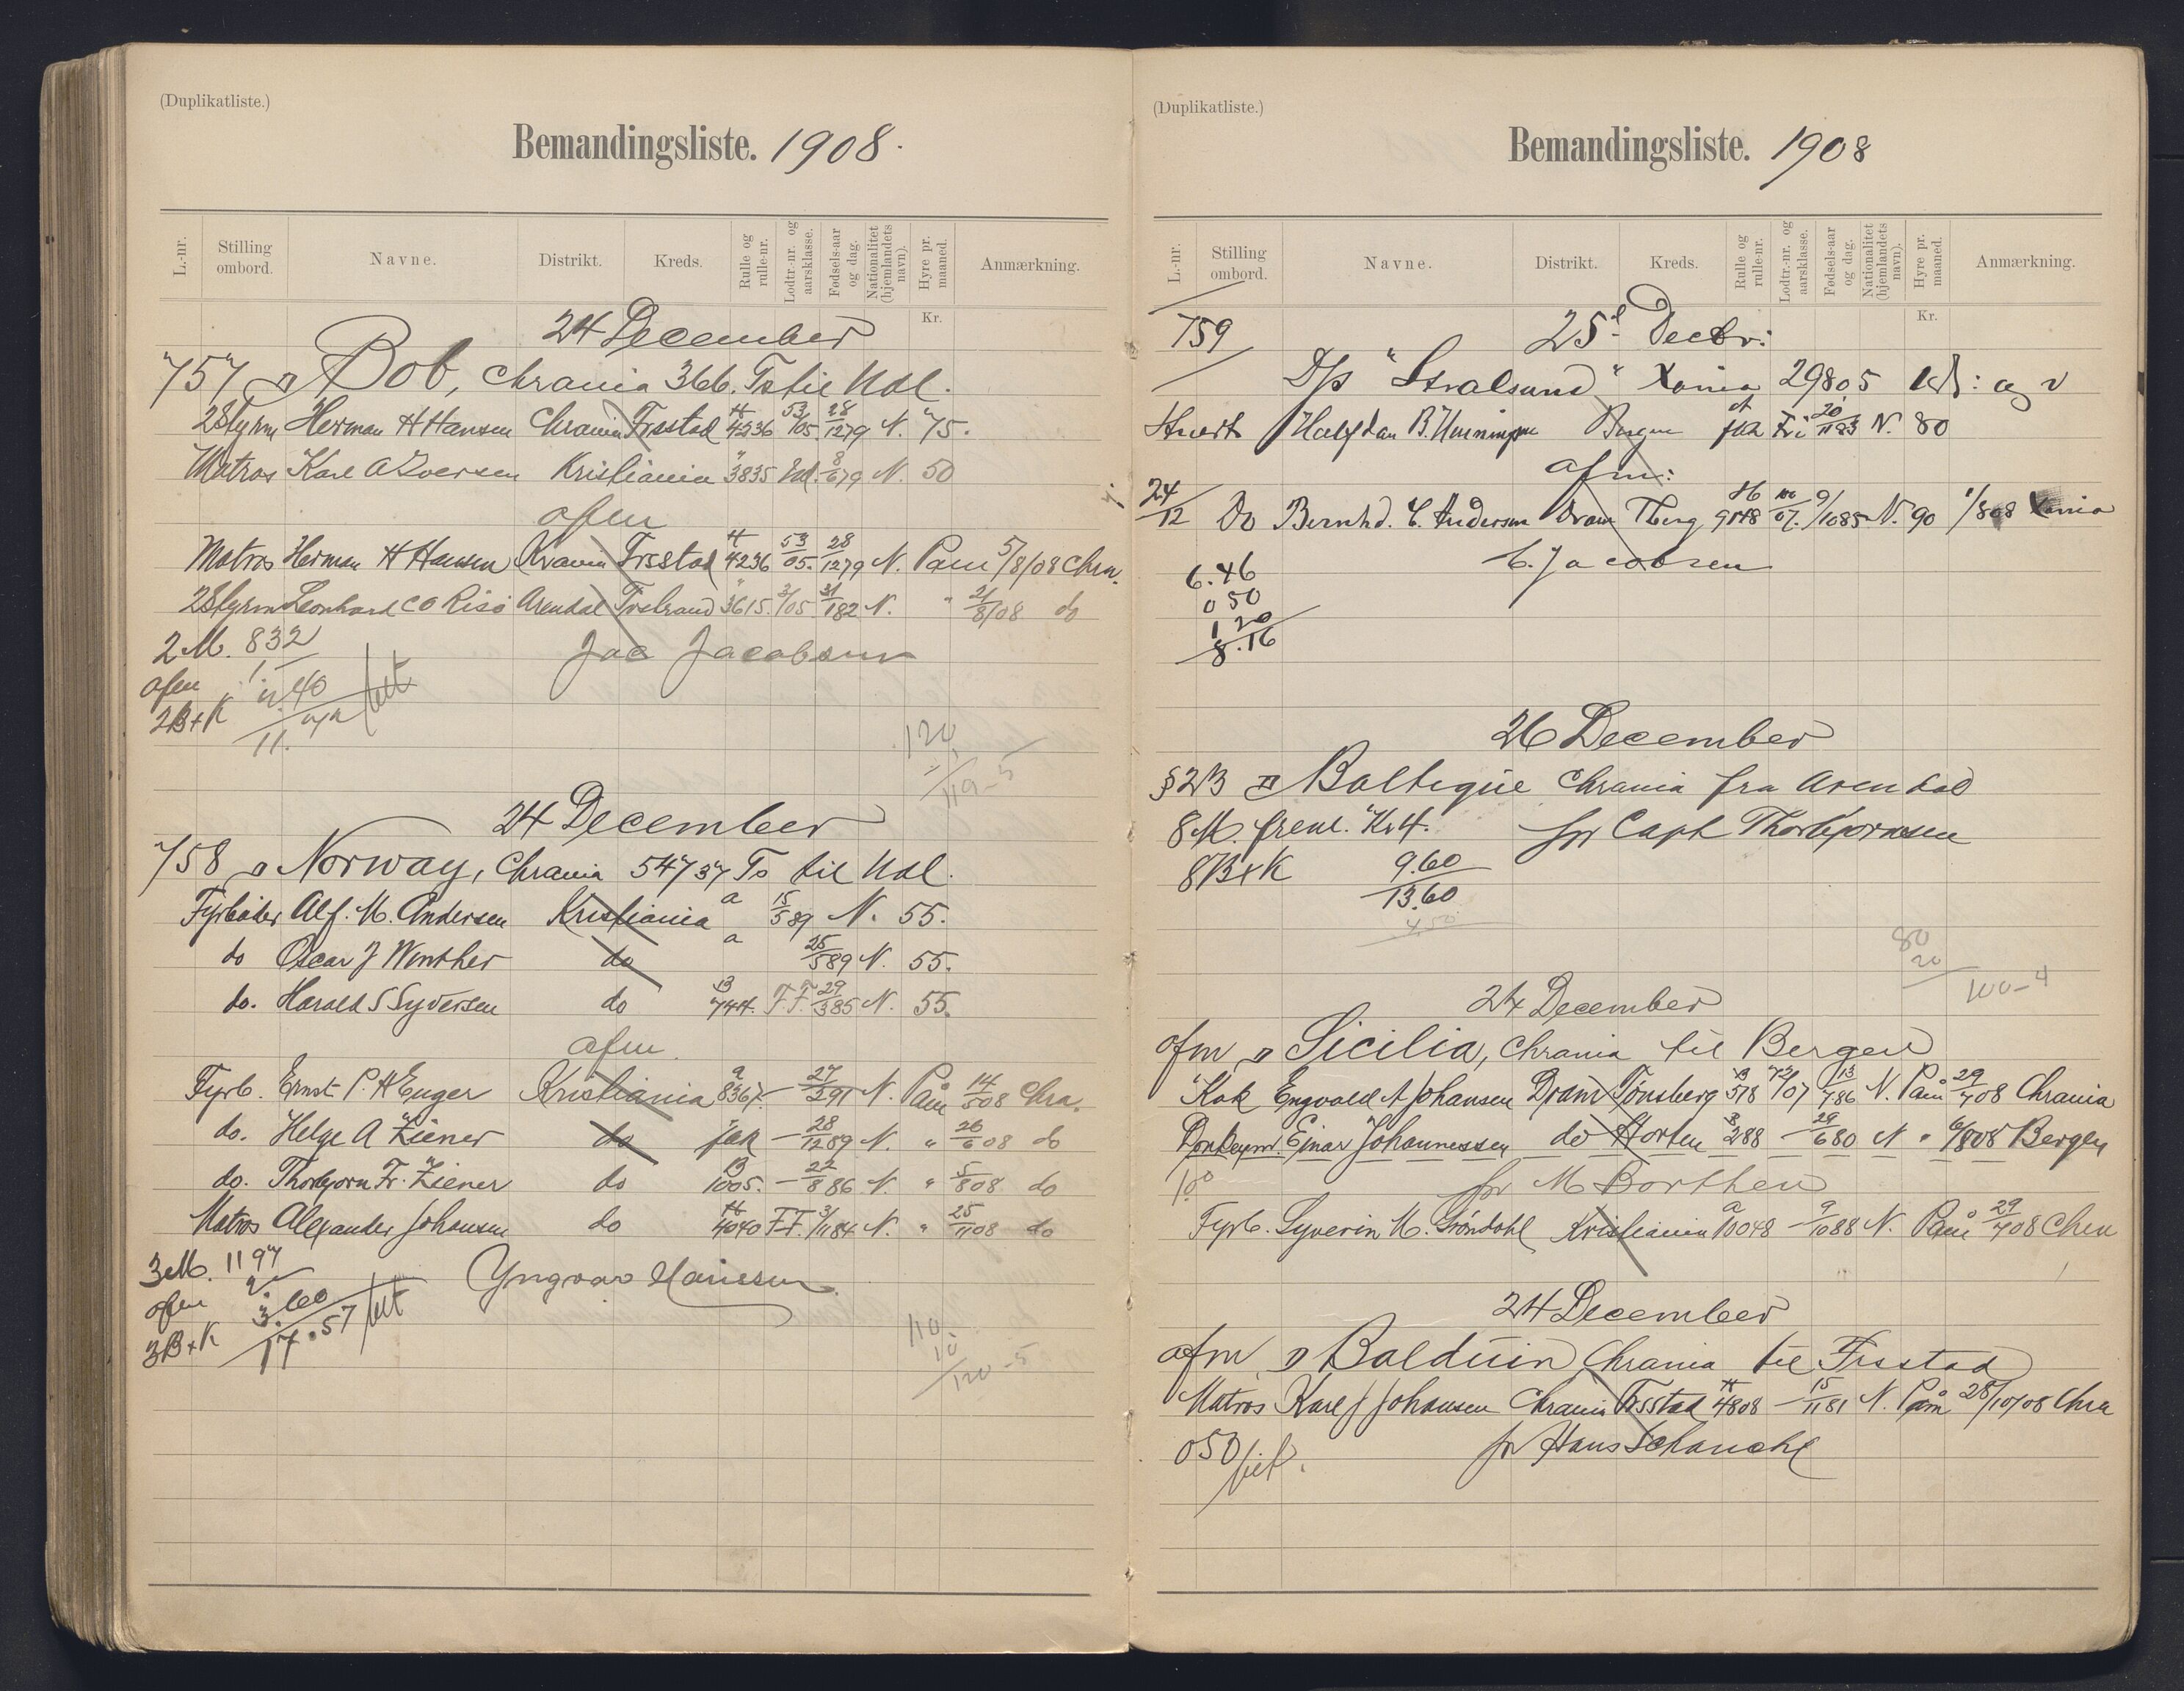 (Duplikatliste.)
Bemandingsliste. 1908.
L.-nr. Stilling ombord. Navne. Distrikt. Kreds. Rulle og rulle-nr. Lodtr.-nr. og aarsklasse. Fødsels-aar og dag. Nationalitet (hjemlandets navn). Hyre pr. maaned. Anmærkning.
Kr.
24 December
757 Bob, Chrania 366. Ts til Udl.
2Styrm Herman H Hansen Chrania Frsstad H 4236 53/05 28/1279 N. 75.
Matros Karl A Iversen Kristiania " 3835 8/679 N. 50
afm
Matros Herman H Hansen Krania Frsstad H 4236 53/05. 28/1279 N. Paam 5/8/08 Chra.
2Styrm Leonhard C O Risø Arendal " 3615. 2/05 31/182 N. " 21/8/08 do
2 M. 832
Jac Jacobsen
afm 1.
2B+K 2.40
11.
120
119-5
24 December
758 Norway, Chrania 547 37 Ts til Udl.
Fyrbøder Alf. M. Andersen Kristiania a 15/589 N. 55.
do Oscar J Winther do a 25/589 N. 55.
do. Harald S Syversen do B 744. F.F. 29/385 N. 55.
afm.
Fyrb. Ernst P. H Enger Kristiania a 8367. - 27/291 N. Paam 14/508 Chra.
do. Helge A Ziener do - 28/1289 N. " 26/608 do
do. Thorbjørn Fr. Ziener do B 1005. - 22/886 N. " 5/808 do
Matros Alexander Johansen do H 4040 F F. 3/1184 N. " 25/1108 do
3M. 1197
Yngvar Hansen
afm 2.
3B+K 3.60
17.57
110
10
120-5
(Duplikatliste.)
Bemandingsliste. 1908
L.-nr. Stilling ombord. Navne. Distrikt. Kreds. Rulle og rulle-nr. Lodtr.-nr. og aarsklasse. Fødsels-aar og dag. Nationalitet (hjemlandets navn). Hyre pr. maaned. Anmærkning.
Kr.
759 25d Decbr:
D/s "Stralsund" Xania 29805
Stuert Halfdan B. Bergen 20/1183 N. 80
afm:
24/12 Do Bernhd. C. Andersen Dram Tberg H 9148 07. 9/1085 N. 90 1/808 Xania
C. Jacobsen
6.46
0 50
1 20
8.16
26 December
§2B Baltique Chrania fra Arendal
8 M. frem. Kr 4. for Capt Thorbjørnsen
8B+K 9.60
13.60
4.50
80
20
100-4
24 December
afm Sicilia, Chrania til Bergen
Kok Engvald A Johansen Dram Tønsberg B 518 13/786 N. Paam 29/708 Chrania
Donkeym. Einar Johannessen do Horten B 288 - 29/680 N " 6/808 Bergen
1.00 for M Borthen
Fyrb. Syverin M. Grøndahl Kristiania a 10048 - 9/1088 N. Paam 29/708 Chra
24 December
afm Balduin Chrania til Frsstad
Matros Karl J Johansen Chrania Frsstad H 4808 - 15/1181 N. Paam 28/10/08 Chra
050 for Hans Schanche